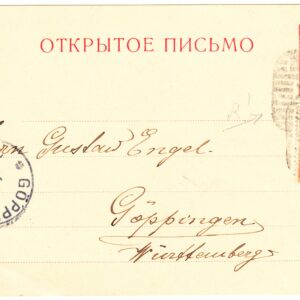 ОТКРЫТОЕ ПИСЬМО
Gustav Engel.
Göppingen
Württemberg.
GÖPP